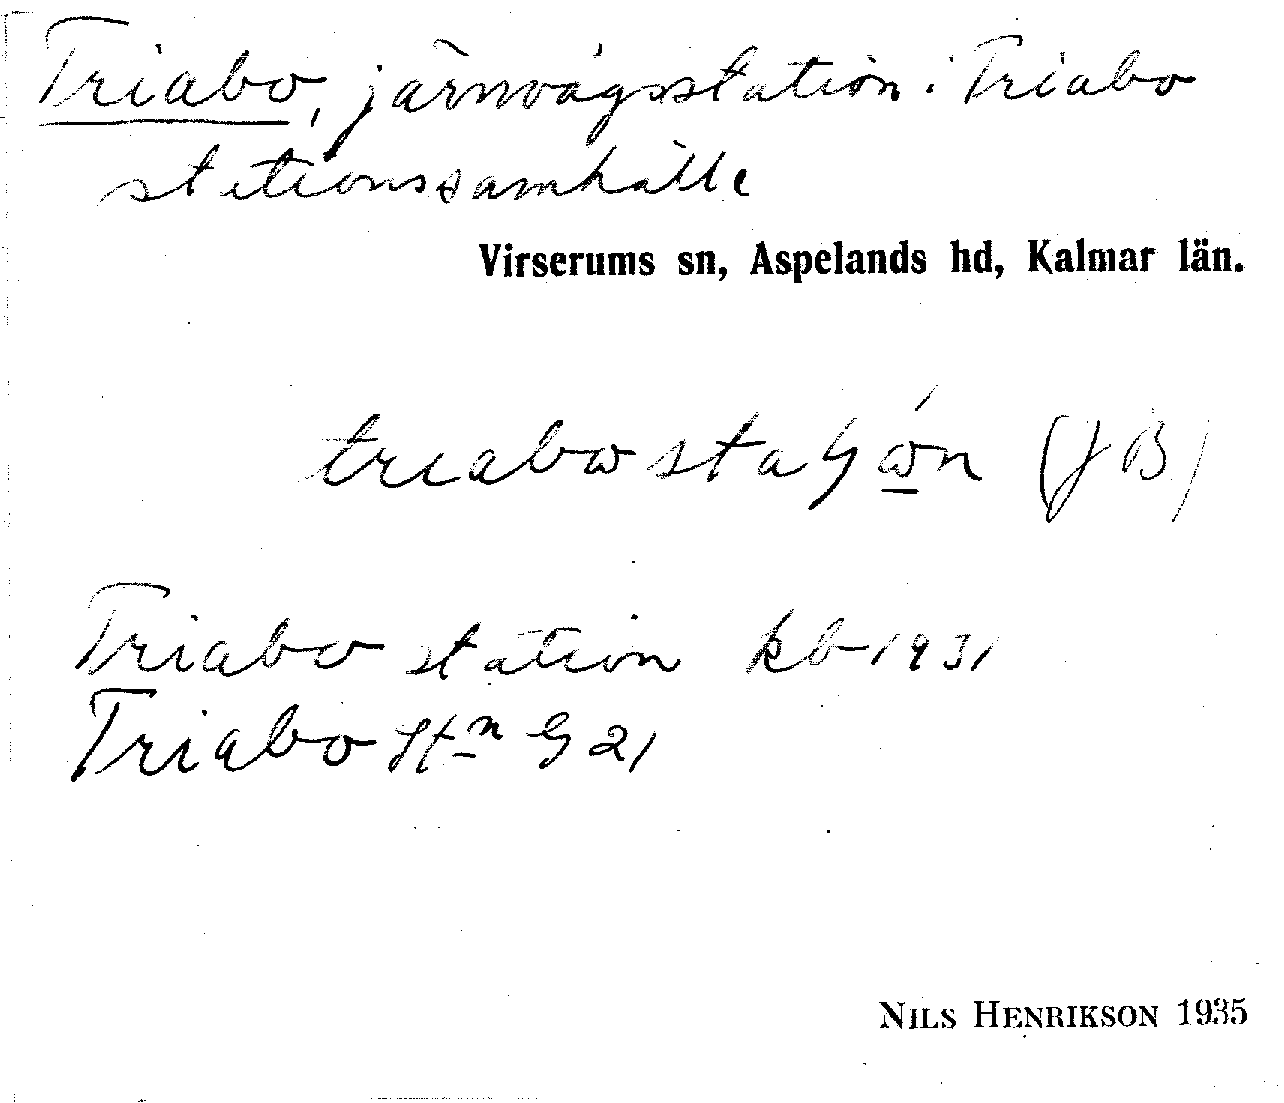 Triabo, järnvägsstation i Triabo
stationssamhälle
Virserums sn, Aspelands hd, Kalmar län.
triabo (JB)
Triabo station kb 1931
Triabo Stn G 21
NILS HENRIKSON 1935